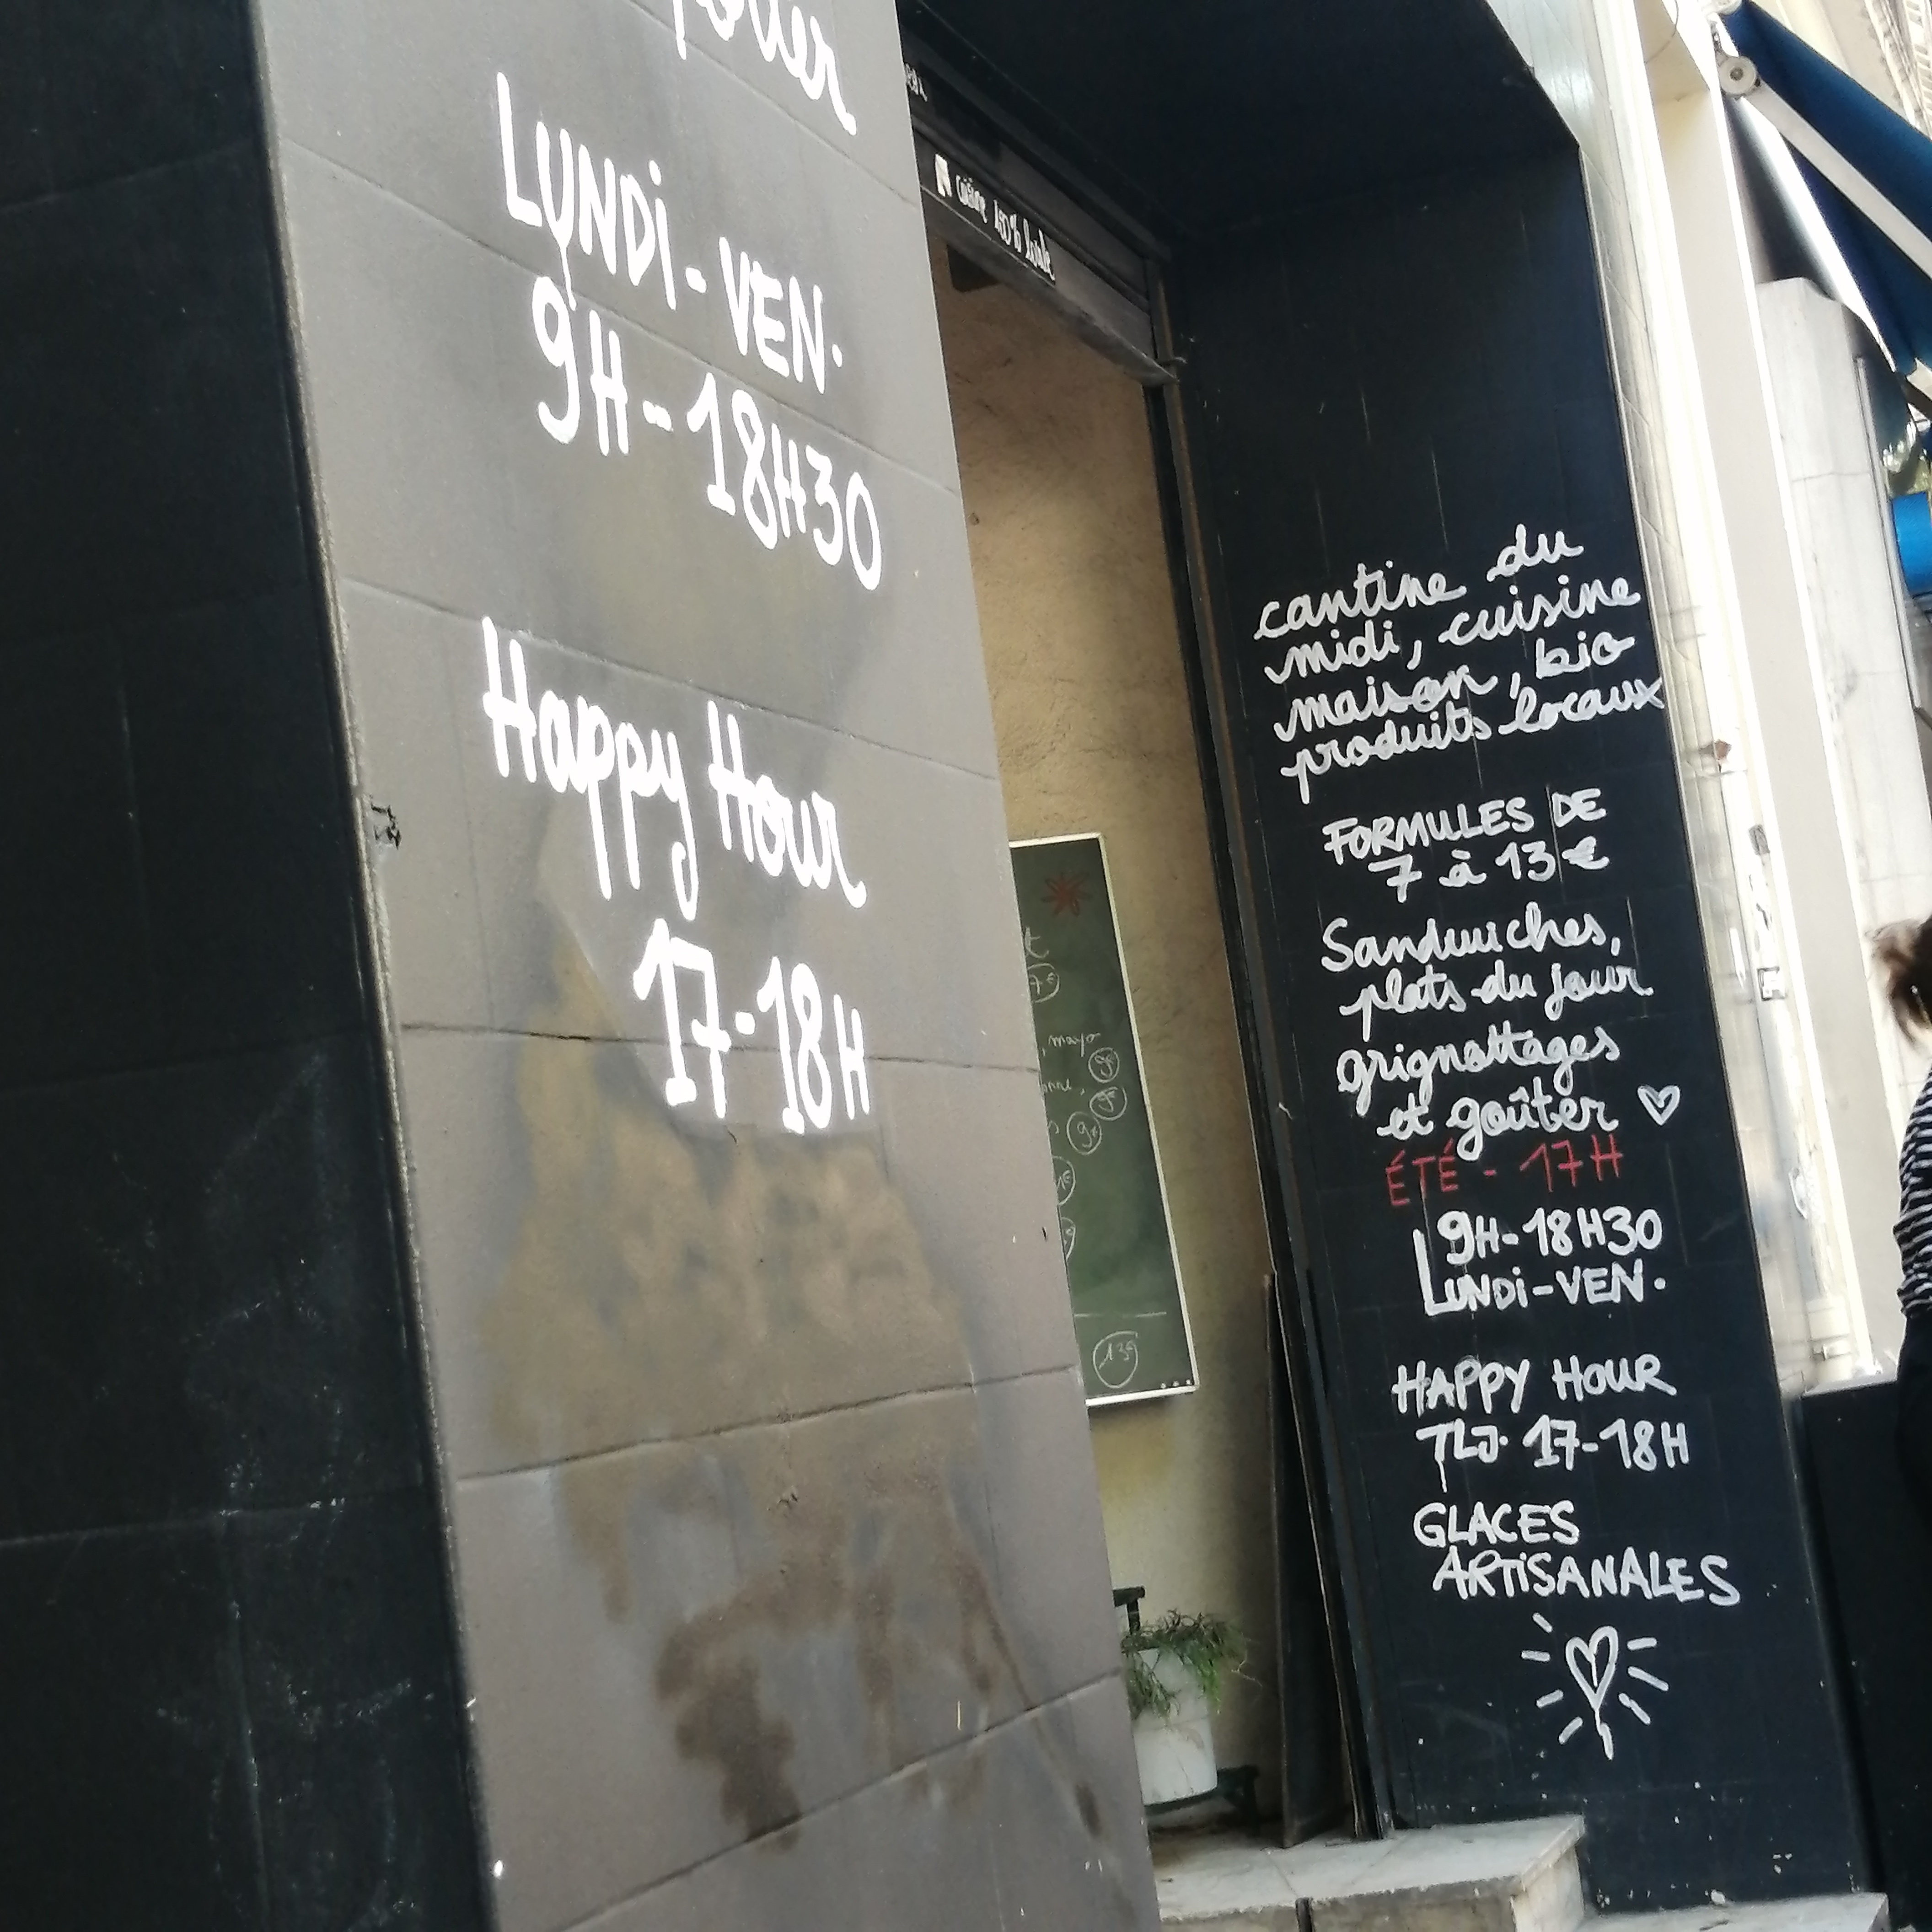 LUNDi - VEN.
9H - 18H30
Happy Hour
17-18H
cuisine 100% locale
mayo
9€
13€
cantine du
midi, cuisine
maison, bio
produits locaux
FORMULES DE
7 à 13 €
Sandwiches,
plats du jour
grignottages
et goûter
ÉTÉ - 17H
9H-18H30
LUNDi-VEN.
HAPPY HOUR
TLJ. 17-18H
GLACES
ARTiSANALES